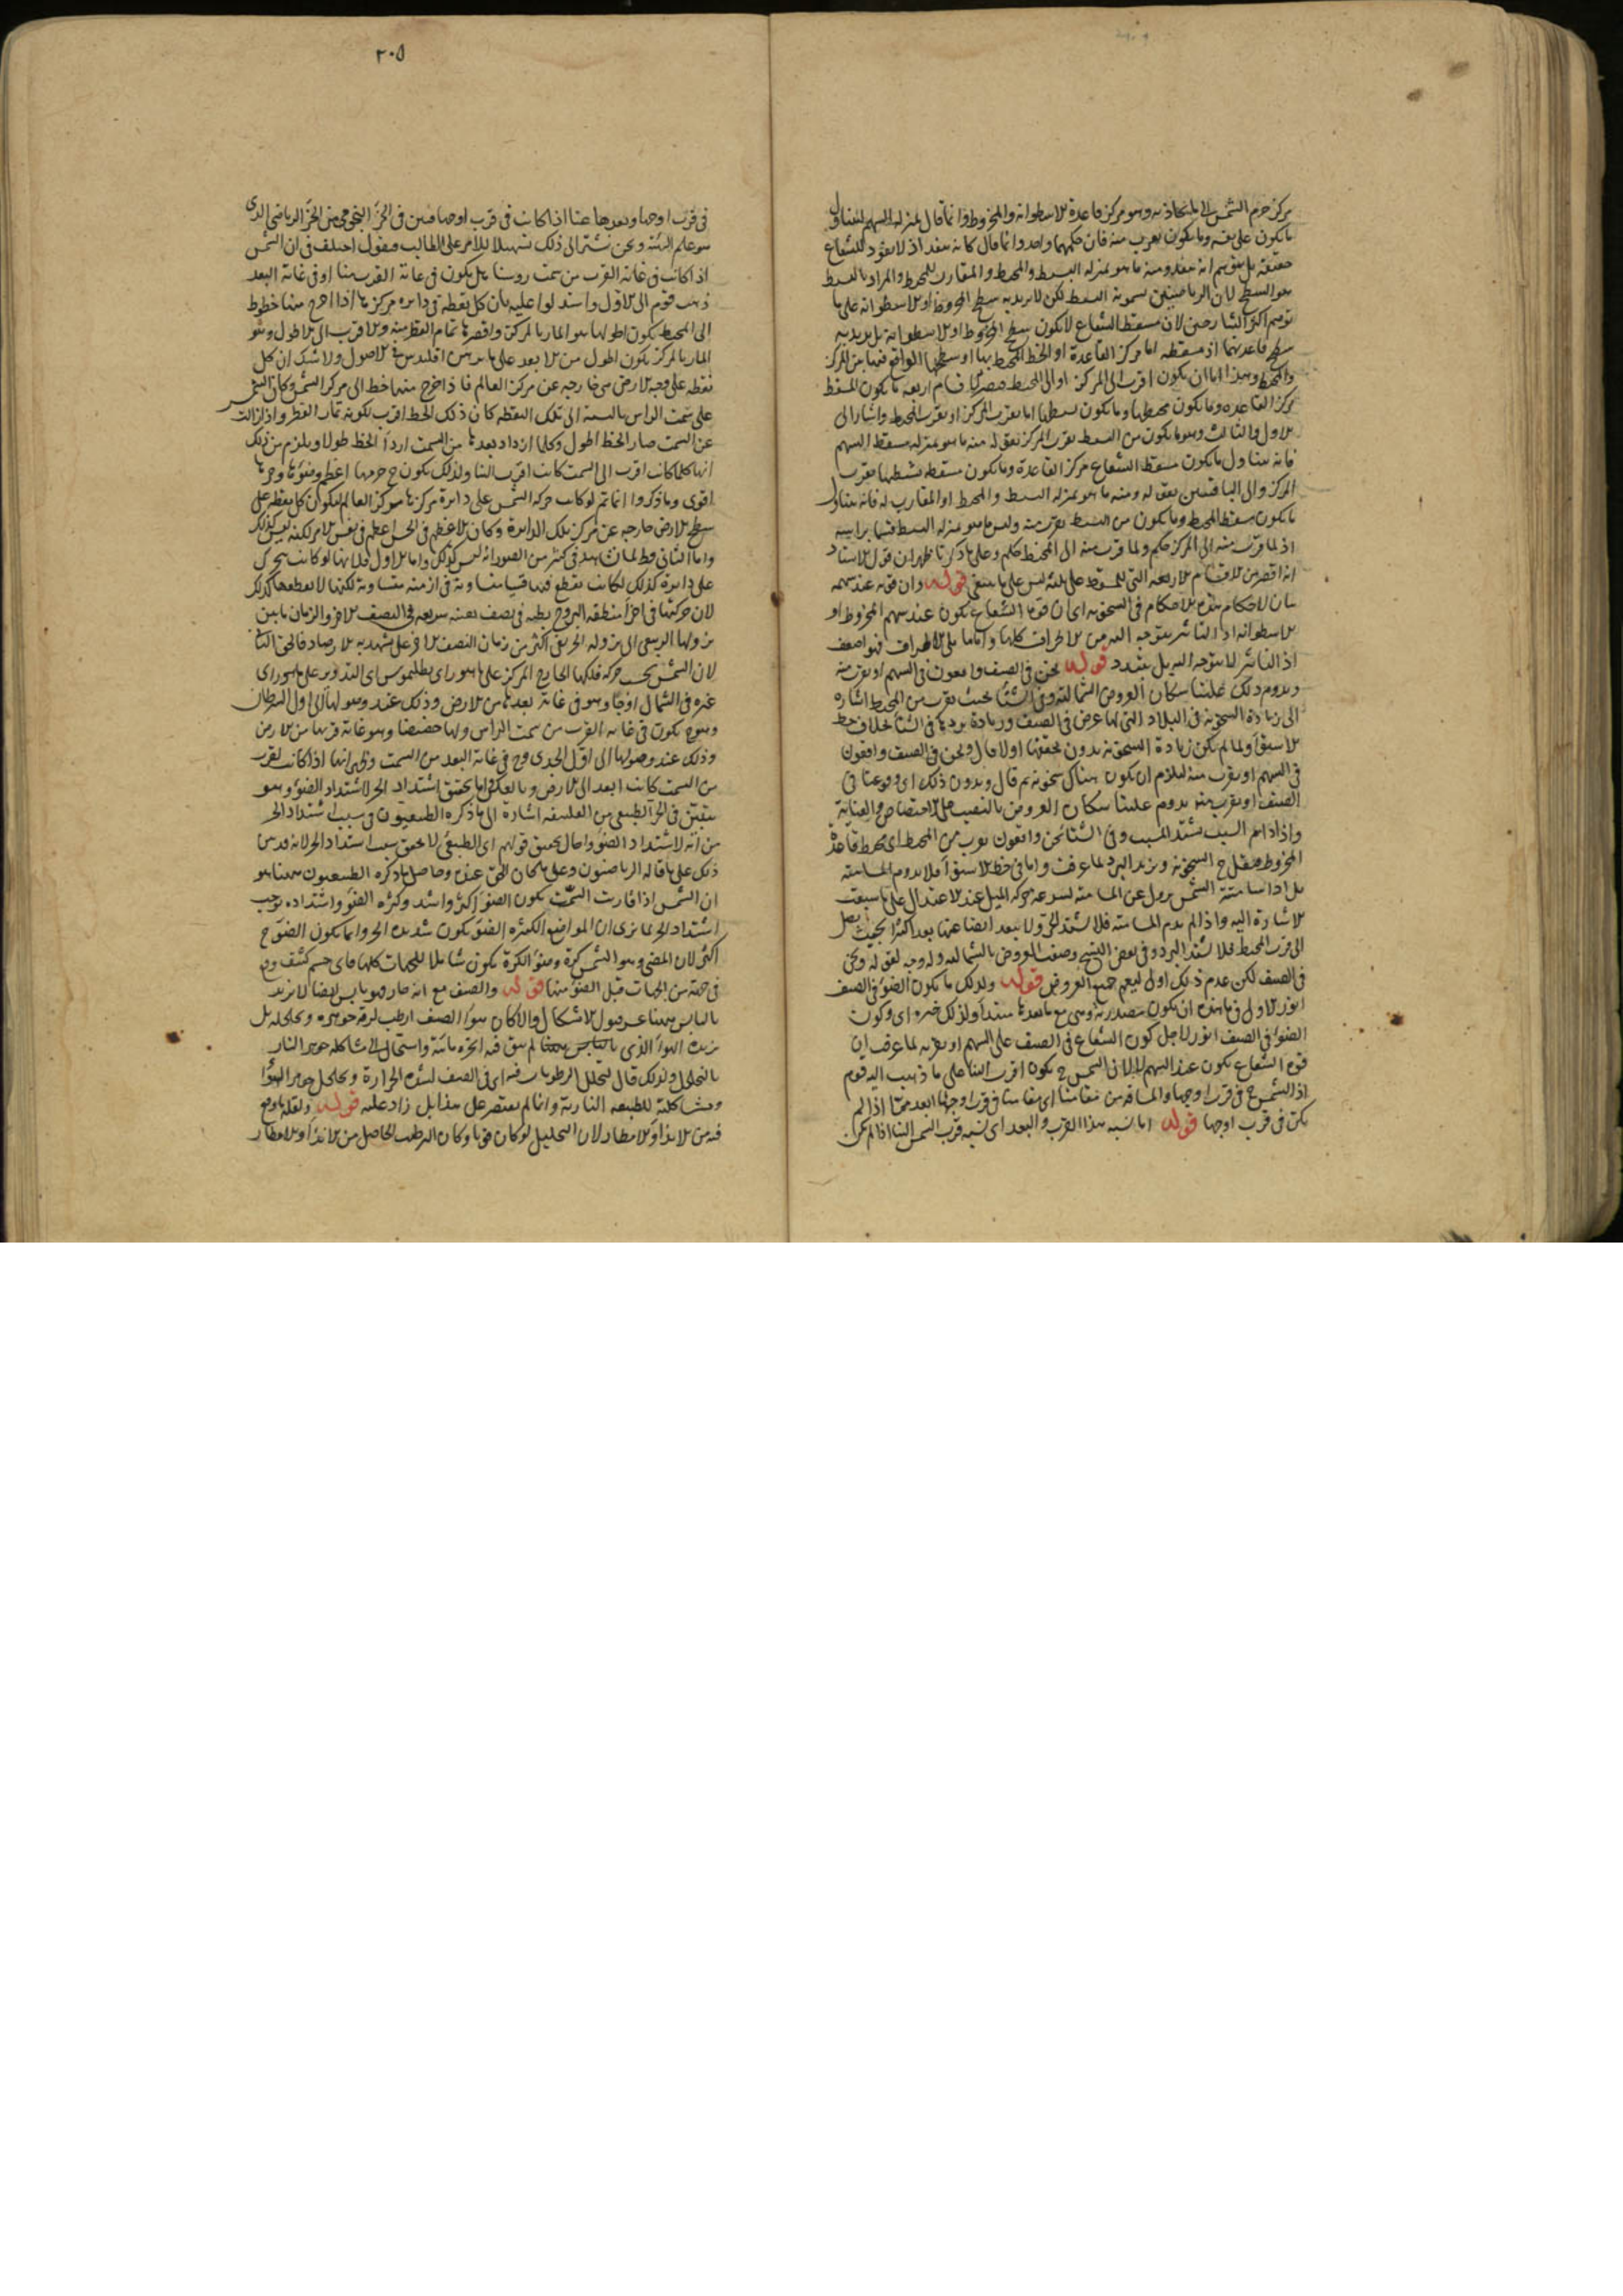 مركز جرم الشمس الى ما يحاذيه وهو مركز قاعدة الاسطوانة والمخروط وانما قال بمنزلة السهم ليتناول
ما يكون على يقه وما يكون بقرب منه فان حكمهما واحد وانما قال كانه ينفذ اذ لا نفوذ للشعاع
حقيقة بل يتوهم انه ينفذ ومنه ما هو بمنزلة البسيط والمحيط والمقارب للمحيط والمراد بالبسيط
هو السطح لان الرياضيين يسمونه البسيط لكن لا يريد به سطح المخروط او الاسطوانة على ما
توهم اكثر الشارحين لان مسقط الشعاع لا يكون سطح المخروط او الاسطوانة بل يريد به
سطح قاعدتهما اذ مسقطه اما مركز القاعدة او الخط المحيط بها او سطحها الواقع فيما بين المركز
والمحيط وهذا اما ان يكون اقرب الى المركز او الى المحيط فيصير اقسام اربعة ما يكون المسقط
مركز القاعدة وما يكون محيطها وما يكون بسيطها اما بقرب المركز او بقرب المحيط واشار الى
الاول والثالث وهو ما يكون من البسيط بقرب المركز بقوله منه ما هو بمنزلة مسقط السهم
فانه يتناول ما يكون مسقط الشعاع مركز القاعدة وما يكون مسقطه بسيطها بقرب
المركز والى الباقيين بقوله ومنه ما هو بمنزلة البسيط والمحيط او المقارب له فانه يتناول
ما يكون مسقط المحيط وما يكون من البسيط بقرب منه وليس ما هو بمنزلة البسيط قسما براسه
اذ لما قرب منه الى المركز حكم ولما قرب منه الى المحيط حكم وعلى ما ذكرنا ظهر ان قول الاستاد
انه اقتصر من الاقسام الاربعة التي للمسقط على ثلثة ليس على ما ينبغي قوله وان قوته عند سهمه
بيان لاحكام هذه الاحكام في السخونة اى ان قوة الشعاع يكون عند سهم المخروط او
الاسطوانة اذ التاثير يتوجه اليه من الاطراف كلها واما ما يلى الاطراف فهو اضعف
اذ التاثير لا يتوجه اليه بل يتبدد قوله نحن في الصيف واقعون في السهم او بقرب منه
ويدوم ذلك علينا سكان العروض الشمالية وفي الشتا بحيث بقرب من المحيط اشارة
الى زيادة السخونة في البلاد التي لها عرض في الصيف وزيادة بردها في الشتا بخلاف خط
الاستوا ولما لم يكن زيادة السخونة بدون تحققها اولا قال ونحن في الصيف واقعون
في السهم او بقرب منه ليلزم ان يكون هناك سخونة ثم قال ويدوم ذلك اى وقوعنا في
الصيف او بقرب منه يدوم علينا سكان العروض بالنصب على الاختصاص والعناية
واذا دام السبب يشتد المسبب وفي الشتا نحن واقعون بقرب من المحيط اى محيط قاعدة
المخروط فيقل ح السخونة ويزيد البرد لما عرفت واما في خط الاستوا فلا يدوم المسامتة
بل اذا سامتته الشمس يزول عن المسامتة لسرعة حركة الميل عند الاعتدال على ما سبقت
الاشارة اليه واذا لم يدم المسامتة فلا يشتد الحر ولا يبعد ايضا عنها بعدا كثيرا بحيث يصل
الى قرب المحيط فلا يشتد البرد وفي بعض النسخ وصف العروض بالشمالية وله وجه لقوله ونحن
في الصيف لكن عدم ذلك اولى ليعم جميع العروض قوله ولذلك ما يكون الضوء في الصيف
انور الاول في ما هذه ان يكون مصدرية وهي مع ما بعدها مبتدا ولذلك خبره اى وكون
الضوء في الصيف انور لاجل كون الشعاع في الصيف على السهم او بقربه لما عرفت ان
قوة الشعاع يكون عند السهم لا لان الشمس ح يكون اقرب الينا على ما ذهب اليه قوم
اذ الشمس ح في قرب اوجها والمسافة من مقامنا اى مقامنا في قرب اوجها ابعد ممّا اذا لم
يكن في قرب اوجها قوله اما نسبة هذا القرب والبعد اى نسبة قرب الشمس الينا اذا لم يكن
٢٠٥
في قرب اوجها وبعدها عنا اذا كانت في قرب اوجها فتبين في الجزء النجومى من الجزء الرياضى الذى
هو علم الهيئة ونحن نشير الى ذلك تسهيلا للامر على الطالب فنقول اختلف في ان الشمس
اذا كانت في غاية القرب من سمت روسنا هل يكون في غاية القرب منا او في غاية البعد
ذهب قوم الى الاول واستدلوا عليه بان كل نقطة في دايره غير مركزها اذا اخرج منها خطوط
الى المحيط يكون اطولها هو المار بالمركز واقصرها تمام القطر منه والاقرب الى الاطول وهو
المار بالمركز يكون اطول من الابعد على ما برهن اقليدس في الاصول ولا شك ان كل
نقطة على وجه الارض هي خارجة عن مركز العالم فاذا خرج منها خط الى مركز الشمس وكان الشمس
على سمت الراس بالنسبة الى تلك النقطة كان ذلك الخط اقرب لكونه تمام القطر واذا زالت
عن السمت صار الخط اطول وكلما ازداد بعدها من السمت ازداد الخط طولا ويلزم من ذلك
انها كلما كانت اقرب الى السمت كانت اقرب الينا ولذلك يكون ح جرمها اعظم وضوءها وحرها
اقوى وما ذكروا انما يتم لو كانت حركة الشمس على دايرة مركزها مركز العالم ليكون كل نقطة على
سطح الارض خارجة عن مركز تلك الدايرة وكان الاعظم في الحس اعظم في نفس الامر لكنه ليس كذلك
واما الثاني فط لما يشاهد في كثير من الصور انه ليس كذلك واما الاول فلانها لو كانت يتحرك
على دايرة كذلك لكانت يقطع قسيا متساوية في ازمنة متساوية لكنها لا يقطعها كذلك
لان حركتها في اجزاء منطقة البروج بطيئة في نصف بعينه سريعة في النصف الاخر والزمان ما بين
نزولها الربيعى الى نزوله الخريفى اكثر من زمان النصف الاخر على ما شهد به الارصاد فالحق الثاني
لان الشمس بحسب حركة فلكها الخارج المركز على ما هو راى بطلميوس او التدوير على ما هو راى
غيره في الشمال اوجا وهو في غاية بعدها من الارض وذلك عند وصولها الى اول السرطان
وهو ح يكون في غاية القرب من سمت الراس ولها حضيضا وهو غاية قربها من الارض
وذلك عند وصولها الى اول الجدى وح في غاية البعد من السمت وظهر انها اذا كانت بقرب
من السمت كانت ابعد الى الارض وبالعكس واما تحقق اشتداد الحر لاشتداد الضوء وهو
يتبين في الجزء الطبيعى من الفلسفة اشارة الى ما ذكره الطبيعيون في سبب اشتداد الحر
من انه لاشتداد الضوء واحال تحقيق قولهم اى الطبيعى لا تحقيق سبب اشتداد الحر لانه قد بين
ذلك على ما قاله الرياضيون وعلى ما كان الحق عنده وحاصل ما ذكره الطبيعيون ههنا هو
ان الشمس اذا قاربت السمت يكون الضوء اكثر واشد وكثرة الضوء واشتداده يوجب
اشتداد الحر لما نرى ان المواضع الكثيرة الضوء يكون شديدة الحر وانما يكون الضوء ح
اكثر لان المضى وهو الشمس كرة وضوء الكرة يكون شاملا للجهات كلها فاى جسم كثيف وقع
في جهة من الجهات قبل الضوء منها قوله والصيف مع انه حار فهو يابس ايضا لا نريد
باليابس ههنا عسر قبول الاشكال والا لكان هواء الصيف ارطب لرقة جوهره وتخلخله بل
نريد الهواء الذى لم يبق فيه ابخرة مائية واستحال الى مشاكلة جوهر النار
بالتخلخل ولذلك قال لتحلل الرطوبات فيه اى في الصيف لشدة الحرارة وتخلخل جوهر الهواء
ومشاكلته للطبيعة النارية وانما لم يقتصر على هذا بل زاد عليه قوله ولقلة ما يقع
فيه من الانداء والامطار لان التحليل لو كان قويا وكان الترطيب الحاصل من الانداء والامطار